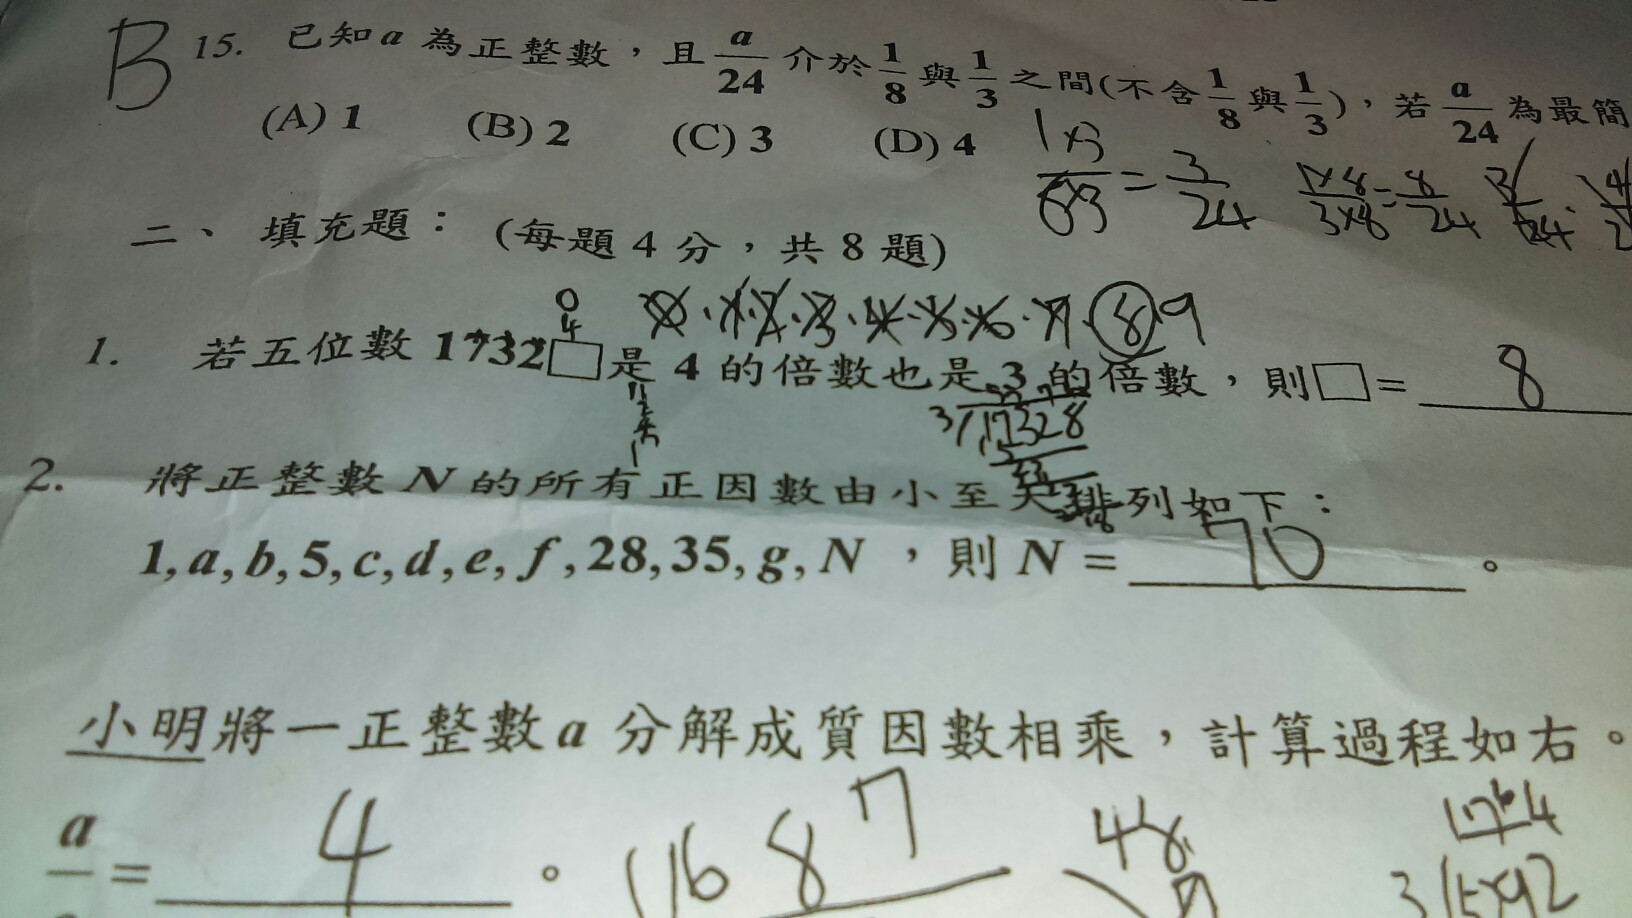 B 15. 已知a 為正整數，且 a/24 介於 1/8 與 1/3 之間(不含 1/8 與 1/3 )，若 a/24 為最簡
(A) 1 (B) 2 (C) 3 (D) 4
1×3 = 3/24 1×8/3×8 = 8/24 3/24 . 4
二、 填充題： (每題 4 分，共 8 題)
0
4 0.1.2.3.4.5.6.7.8 9
1. 若五位數 1732□是 4 的倍數也是 3 的倍數，則□= 8
3 17328
2. 將正整數 N 的所有正因數由小至大排列如下：
1, a, b, 5, c, d, e, f, 28, 35, g, N ，則 N = 70 。
小明將一正整數a 分解成質因數相乘，計算過程如右。
a = 4 。